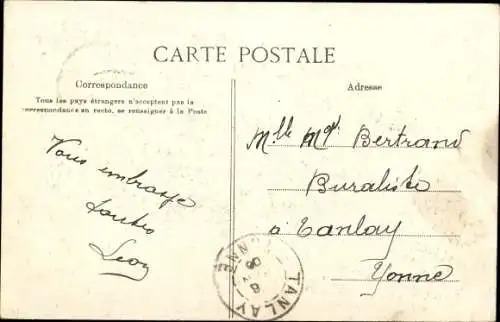 CARTE POSTALE
Correspondance
Tous les pays étrangers n'acceptent pas la
correspondance au recto, se renseigner à la Poste
Vous embrasse
toutes
Léon
Adresse
Mlle Mgte Bertrand
Buraliste
à Tanlay
Yonne
TANLAY
YONNE